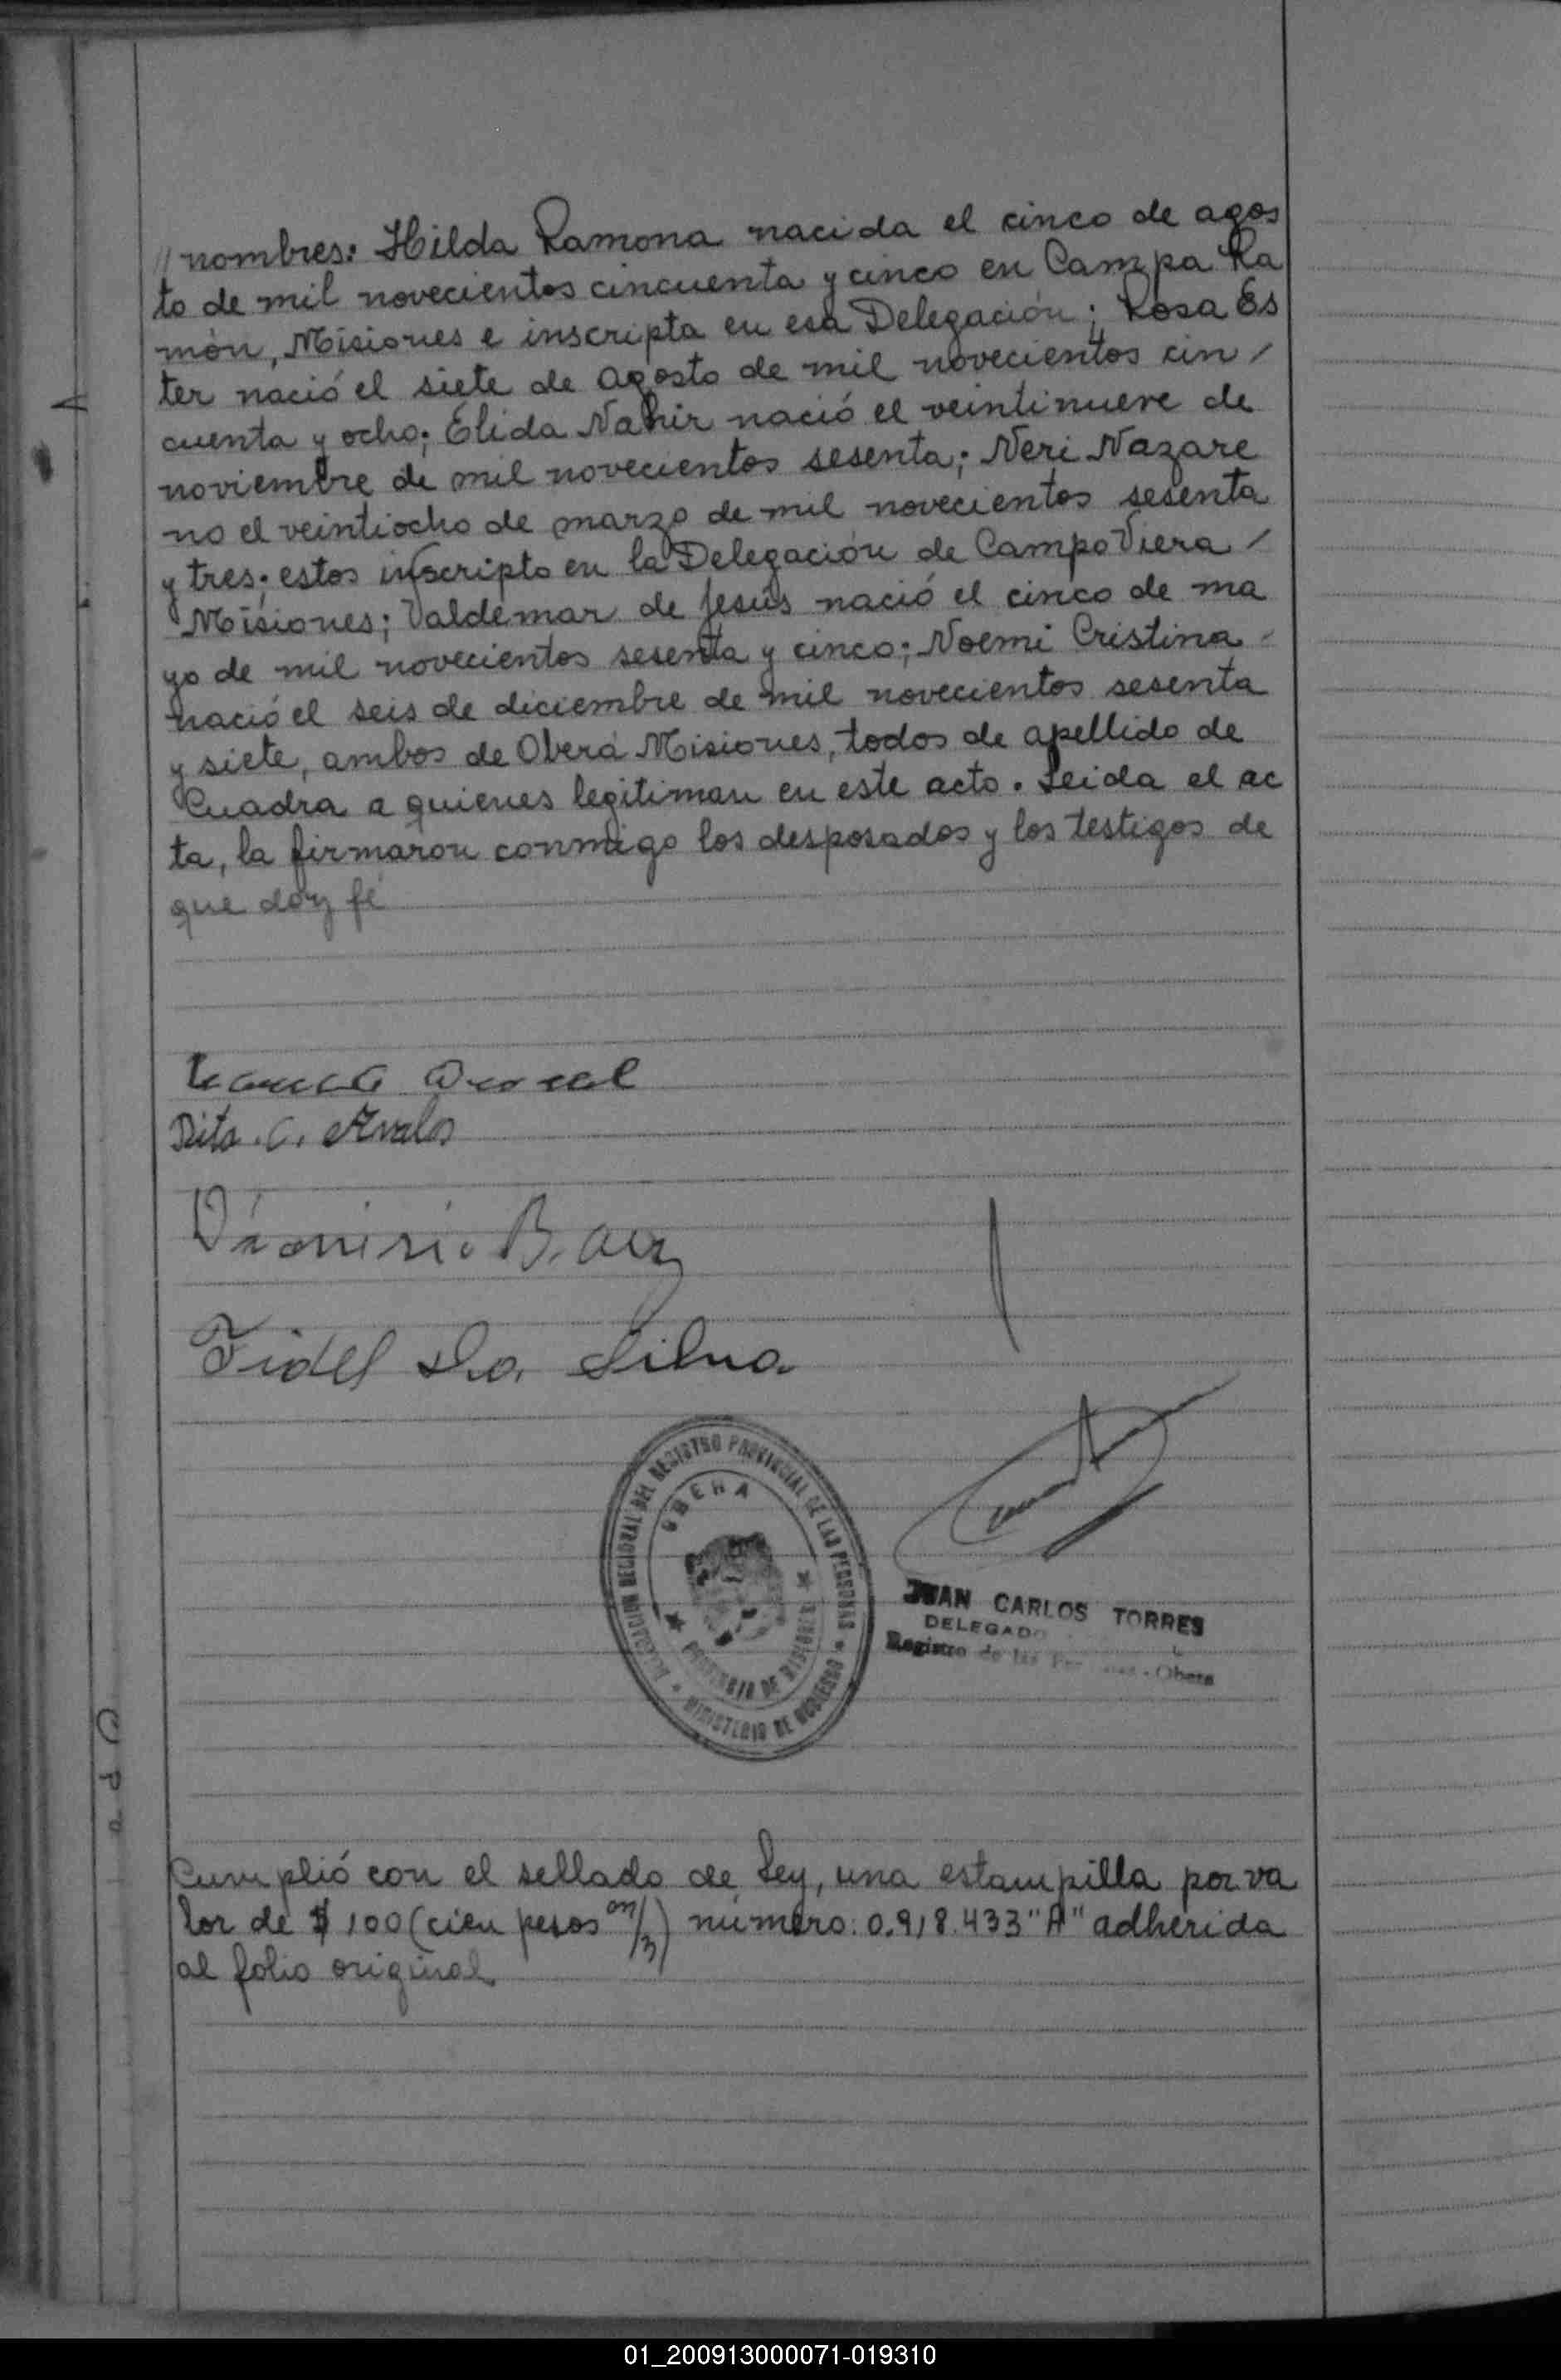 // nombres: Hilda Ramona nacida el cinco de agos
to de mil novecientos cincuenta y cinco en Campa Ra
món, Misiones e inscripta en esa Delegación; Rosa Es
ter nació el siete de agosto de mil novecientos cin /
cuenta y ocho; Élida Nahir nació el veintinueve de
noviembre de mil novecientos sesenta; Neri Nazare
no el veintiocho de marzo de mil novecientos sesenta
y tres; estos inscripto en la Delegación de Campo Viera /
Misiones; Valdemar de Jesús nació el cinco de ma
yo de mil novecientos sesenta y cinco; Noemi Cristina
nació el seis de diciembre de mil novecientos sesenta
y siete, ambos de Oberá Misiones, todos de apellido de
Cuadra a quienes legitiman en este acto. Leida el ac
ta, la firmaron conmigo los desposados y los testigos de
que doy fé
Rita. C. Avalos
Dionisio B. aez
Fidel Da Silva
DELEGACION REGIONAL DEL REGISTRO PROVINCIAL DE LAS PERSONAS
OBERA
PROVINCIA DE MISIONES
MINISTERIO DE GOBIERNO
JUAN CARLOS TORRES
DELEGADO
Registro de las - Obera
Cumplió con el sellado de Ley, una estampilla por va
lor de $ 100 (cien pesos m/n) número: 0.918.433 "A" adherida
al folio original
01_200913000071-019310